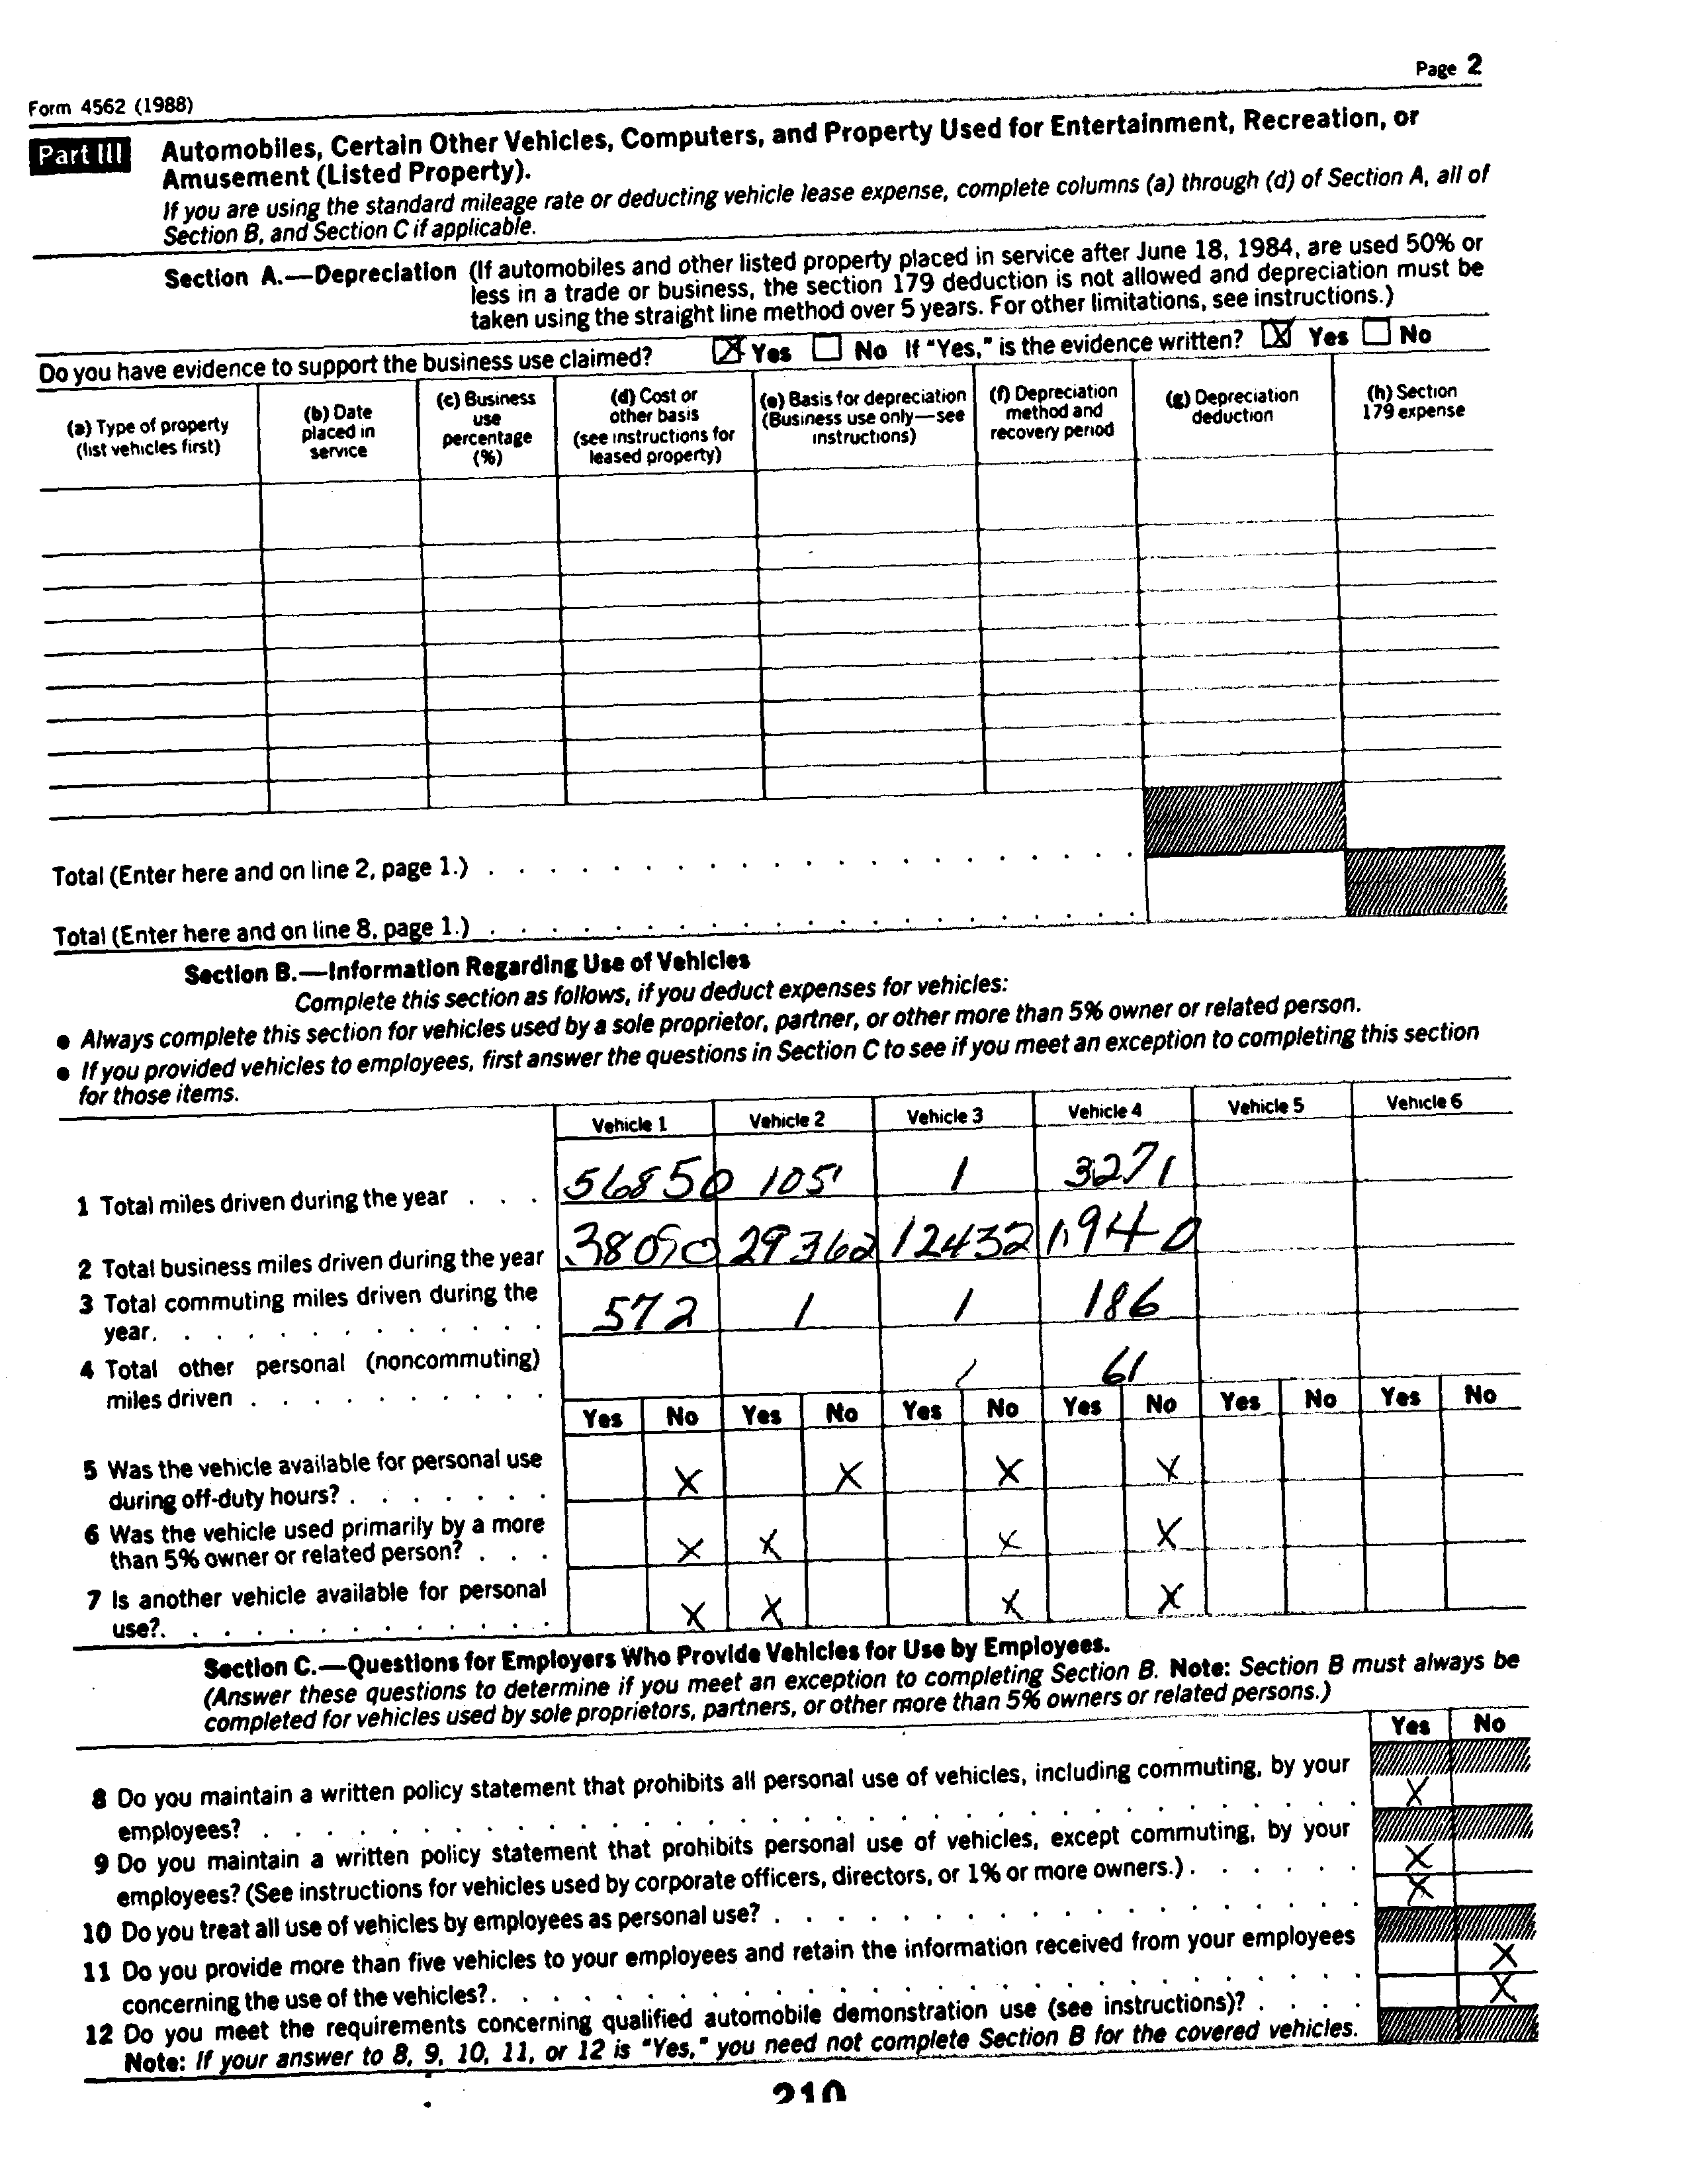 Page 2
Form 4562 (1988)
Part III
Automobiles, Certain Other Vehicles, Computers, and Property Used for Entertainment, Recreation, or
Amusement (Listed Property).
If you are using the standard mileage rate or deducting vehicle lease expense, complete columns (a) through (d) of Section A, all of
Section B, and Section C if applicable.
Section A.—Depreciation (If automobiles and other listed property placed in service after June 18, 1984, are used 50% or
less in a trade or business, the section 179 deduction is not allowed and depreciation must be
taken using the straight line method over 5 years. For other limitations, see instructions.)
Do you have evidence to support the business use claimed? X Yes No If "Yes," is the evidence written? X Yes No
(a) Type of property
(list vehicles first)
(b) Date
placed in
service
(c) Business
use
percentage
(%)
(d) Cost or
other basis
(see instructions for
leased property)
(e) Basis for depreciation
(Business use only—see
instructions)
(f) Depreciation
method and
recovery period
(g) Depreciation
deduction
(h) Section
179 expense
Total (Enter here and on line 2, page 1.) . . . . . . . . . . . . . . . . . . . . .
Total (Enter here and on line 8, page 1.) . . . . . . . . . . . . . . . . . . . . .
Section B.—Information Regarding Use of Vehicles
Complete this section as follows, if you deduct expenses for vehicles:
● Always complete this section for vehicles used by a sole proprietor, partner, or other more than 5% owner or related person.
● If you provided vehicles to employees, first answer the questions in Section C to see if you meet an exception to completing this section
for those items.
Vehicle 1 Vehicle 2 Vehicle 3 Vehicle 4 Vehicle 5 Vehicle 6
1 Total miles driven during the year . . . 56850 105 1 3271
2 Total business miles driven during the year 38090 29362 12432 1940
3 Total commuting miles driven during the
year. . . . . . . . . . . . . 572 1 1 186
4 Total other personal (noncommuting)
miles driven . . . . . . . . . . 1 61
Yes No Yes No Yes No Yes No Yes No Yes No
5 Was the vehicle available for personal use
during off-duty hours? . . . . . . . X X X X
6 Was the vehicle used primarily by a more
than 5% owner or related person? . . . X X X X
7 Is another vehicle available for personal
use?. . . . . . . . . . . . . X X X X
Section C.—Questions for Employers Who Provide Vehicles for Use by Employees.
(Answer these questions to determine if you meet an exception to completing Section B. Note: Section B must always be
completed for vehicles used by sole proprietors, partners, or other more than 5% owners or related persons.)
Yes No
8 Do you maintain a written policy statement that prohibits all personal use of vehicles, including commuting, by your
employees? . . . . . . . . . . . . . . . . . . . . . . X
9 Do you maintain a written policy statement that prohibits personal use of vehicles, except commuting, by your
employees? (See instructions for vehicles used by corporate officers, directors, or 1% or more owners.) . . . . . . X
10 Do you treat all use of vehicles by employees as personal use? . . . . . . . . . . . . . . . . . . X
11 Do you provide more than five vehicles to your employees and retain the information received from your employees
concerning the use of the vehicles?. . . . . . . . . . . . . . . . . . . . . X
12 Do you meet the requirements concerning qualified automobile demonstration use (see instructions)? . . . . X
Note: If your answer to 8, 9, 10, 11, or 12 is "Yes," you need not complete Section B for the covered vehicles.
210